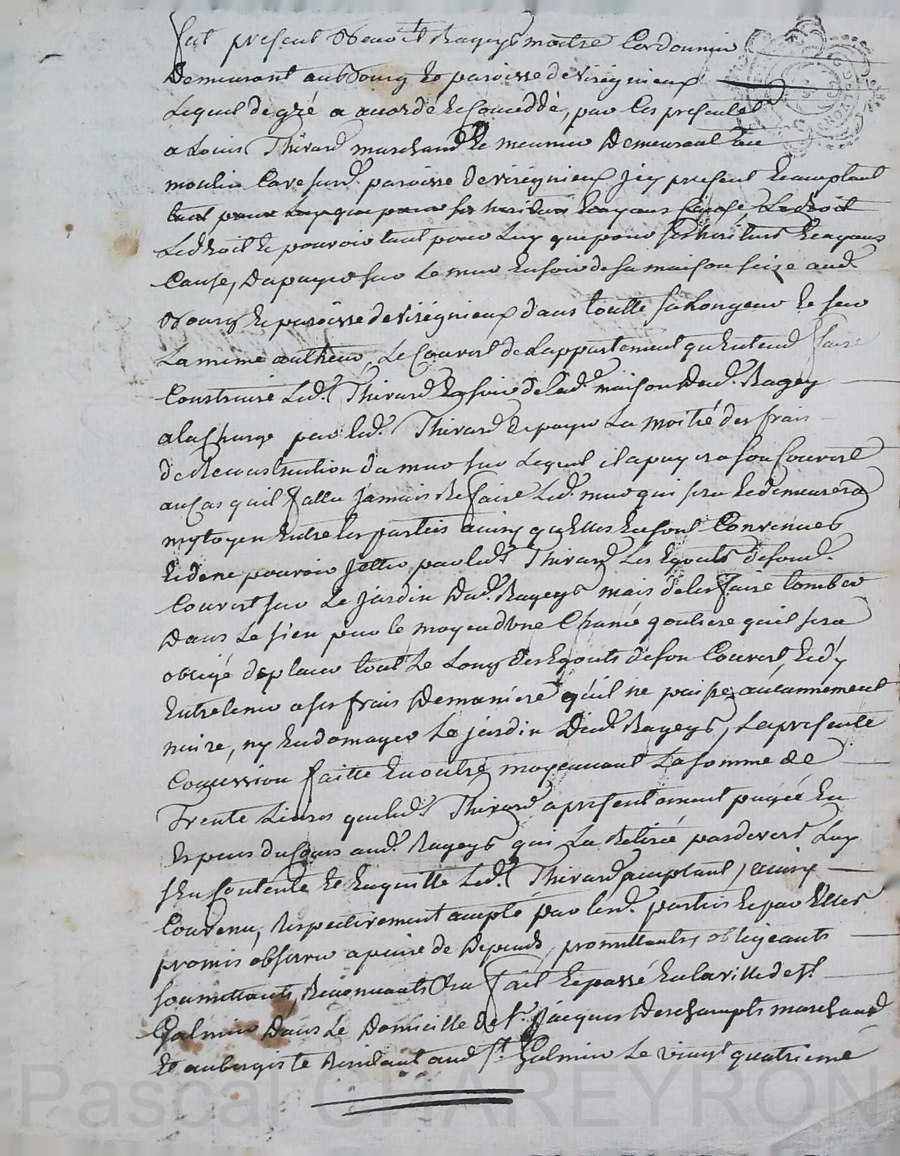 fut present Benoit Rageys maitre Cordonnier
Demeurant au Bourg et paroisse de virégnieux
Lequel de gré a acordé et Conceddé, par Ces presentes
a Louis Thivard marchand et meunier Demeurant au
moulin paroisse de virigneux jcy present et aceptant
tant pour Luy que pour ses heritiers et ayans Cause, Le droit
Le droit et pouvoir tant pour Luy que pour ses heritiers et ayans
Cause, Dapuyer sur Le mur du soir de sa maison size aud.
Bourg et paroisse de virégnieux dans toutte sa Longeur et sur
La meme autheur, Le Couvert de Lappartement qu'entend faire
Construire Led. Thivard du soir de lad. maison Dud. Ragey
a la Charge par led. Thivard de payer La moitié des frais
de Reconstruction du mur sur Lequel il apuyera son Couvert
au Cas quil fallu jamais Refaire Led. mur qui sera et demeurera
mytoyen Entre les parties ainsy qu'Elles En sont Convenues
pouvoir jetter par led. Thivard Les Egouts de sond.
Couvert sur Le jardin Dud. Rageys mais de les faire tomber
Dans Le sien par le moyen d'une Chané goutiere quil sera
obligé de placer tout Le Long des Egouts de son Couvert, et d'y
Entretenir a ses frais De maniere qu'il ne puisse aucunnement
nuire, ny Endomager Le jardin Dud. Rageys, La presente
Concession faitte En outre moyennant La somme de
Trente Livres que led. Thivard a presentement payée En
Especes du Cours aud. Rageys qui La Retirée pardevers Luy
s'En Contente et En quitte Led. Thivard aceptant, ainsy
Convenu, Respectivement accepté par lesd. parties et par Elles
promis observer a peine de Depends, promettants, obligeants
soumettants, Renonçants &a fait et passé En la ville de St.
Galmier Dans Le Domicille de Sr. jacques Deschampts marchand
Et aubergiste Residant aud. St. Galmier Le vingt quatrieme
Pascal CHAREYRON